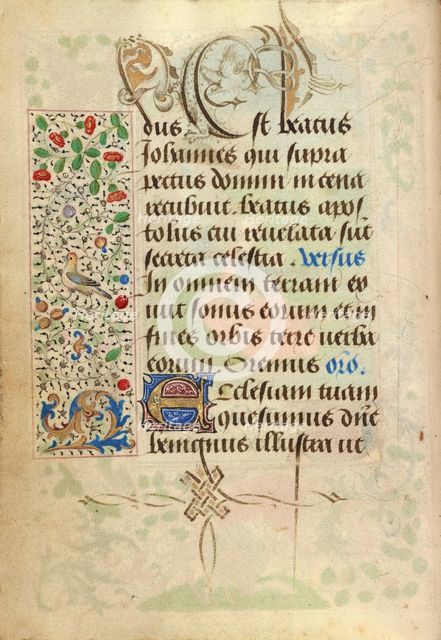 dus Est beatus
Johannes qui supra
pectus domini in cena
recubuit. beatus apos
tolus cui reuelata sũt
secreta celestia. versus
In omnem terram ex
iuit sonus eorum et in
fines orbis terre uerba
eorum Oremus orō.
Ecclesiam tuam
quesumus dñe
benignus illustra ut